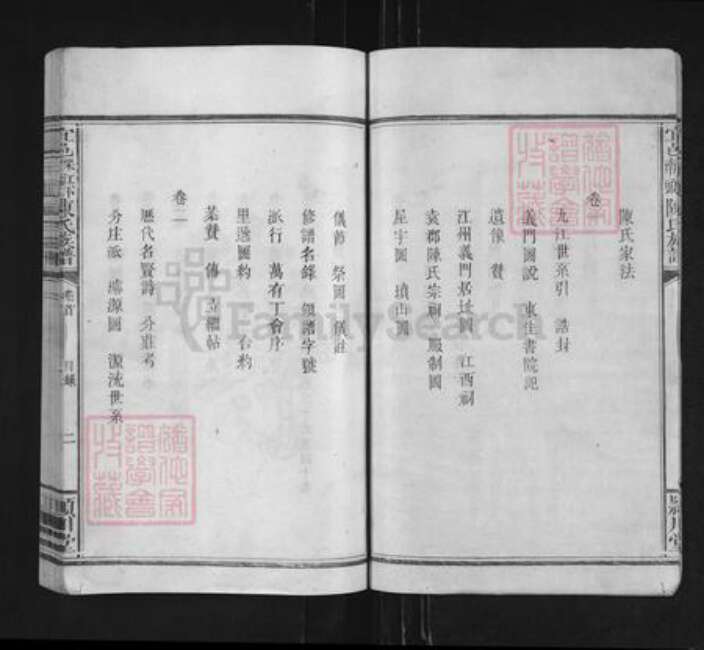 陳氏家法
卷一
九江世系引 誥封
義門圖說 東佳書院記
遺像 贊
江州義門 圖 江西祠
袁郡陳氏宗祠 服制圖
屋宇圖 墳山圖
儀節 祭圖 儀註
修譜名錄 領譜字號
派行 萬有丁會序
里 圖約 合約
菜贊 傳 立繼帖
卷二
歷代名賢 分莊考
分庄派 源圖 源流世系
陳氏族譜
卷首
目錄
二
潁川堂
FamilySearch